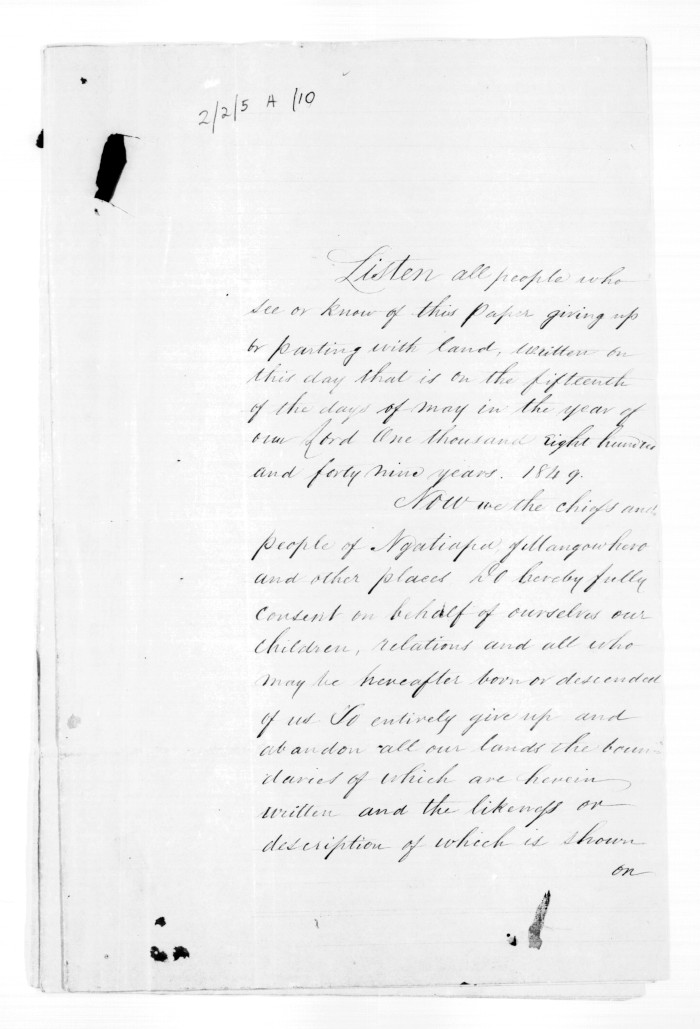 2/2/5 A /10
Listen all people who
see or know of this Paper giving up
or parting with land, written on
this day that is on the fifteenth
of the days of may in the year of
our Lord One thousand Eight hundred
and forty nine years. 1849.
Now we the chiefs and
people of Ngatiapa, of Mangowhero
and other places Do hereby fully
consent on behalf of ourselves our
children, relations and all who
may be hereafter born or descended
of us To entirely give up and
abandon all our lands the boun-
daries of which are herein
written and the likeness or
description of which is shown
on